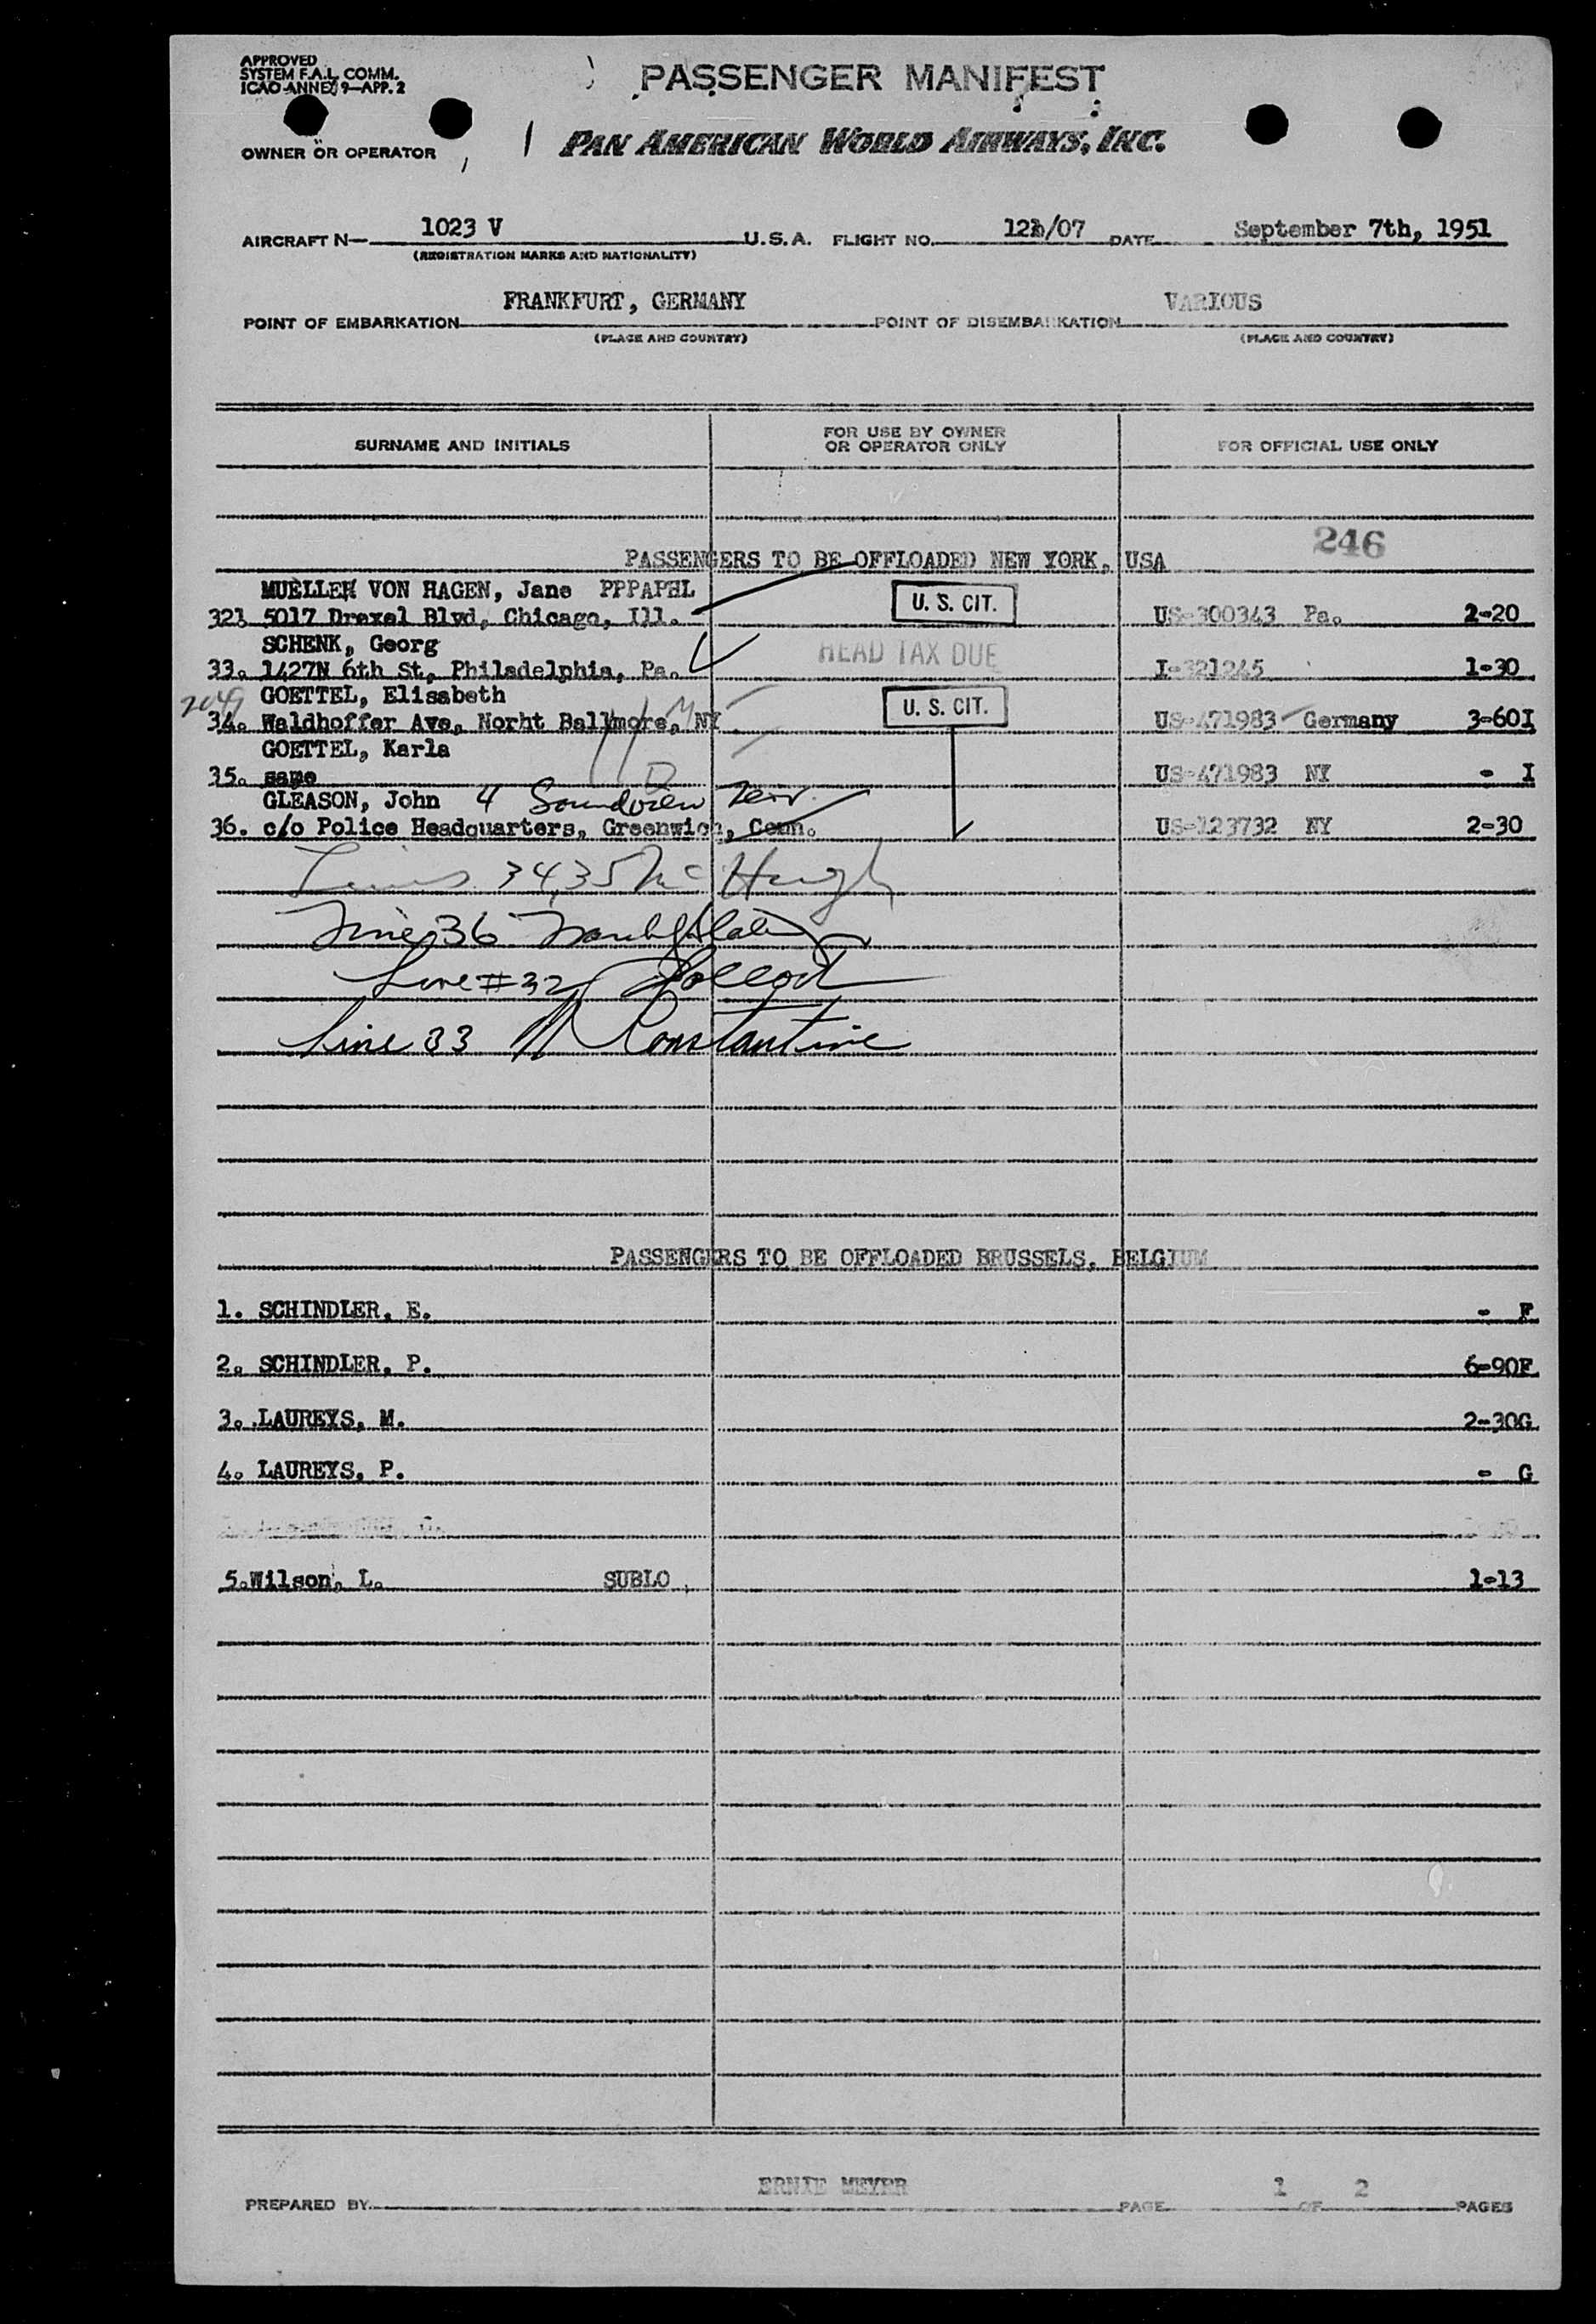 APPROVED
SYSTEM F.A.L. COMM.
ICAO ANNEX 9—APP. 2
PASSENGER MANIFEST
OWNER OR OPERATOR
PAN AMERICAN WORLD AIRWAYS, INC.
AIRCRAFT N— 1023 V U.S.A. FLIGHT NO. /07 DATE September 7th, 1951
(REGISTRATION MARKS AND NATIONALITY)
POINT OF EMBARKATION FRANKFURT, GERMANY POINT OF DISEMBARKATION VARIOUS
(PLACE AND COUNTRY) (PLACE AND COUNTRY)
SURNAME AND INITIALS FOR USE BY OWNER OR OPERATOR ONLY FOR OFFICIAL USE ONLY
246
PASSENGERS TO BE OFFLOADED NEW YORK, USA
MUELLER VON HAGEN, Jane PPPAPHL U. S. CIT.
32. 5017 Drexel Blvd, Chicago, Ill. US-300343 Pa. 2-20
SCHENK, Georg HEAD TAX DUE
33. 1427N 6th St, Philadelphia, Pa. I-321245 1-30
2049 GOETTEL, Elisabeth U. S. CIT.
34. Waldhoffer Ave, Norht Ballmore, NY US-471983 Germany 3-60I
GOETTEL, Karla
35. same US-471983 NY - I
GLEASON, John 4 Soundview Terr.
36. c/o Police Headquarters, Greenwich, Conn. US-123732 NY 2-30
Lines 34,35 McHugh
Line 36
Line #32
Line 33 Constantine
PASSENGERS TO BE OFFLOADED BRUSSELS, BELGIUM
1. SCHINDLER, E. - F
2. SCHINDLER, P. 6-90F
3. LAUREYS, M. 2-30G
4. LAUREYS, P. - G
5.Wilson, L. SUBLO 1-13
PREPARED BY ERNIE MEYER PAGE 1 OF 2 PAGES